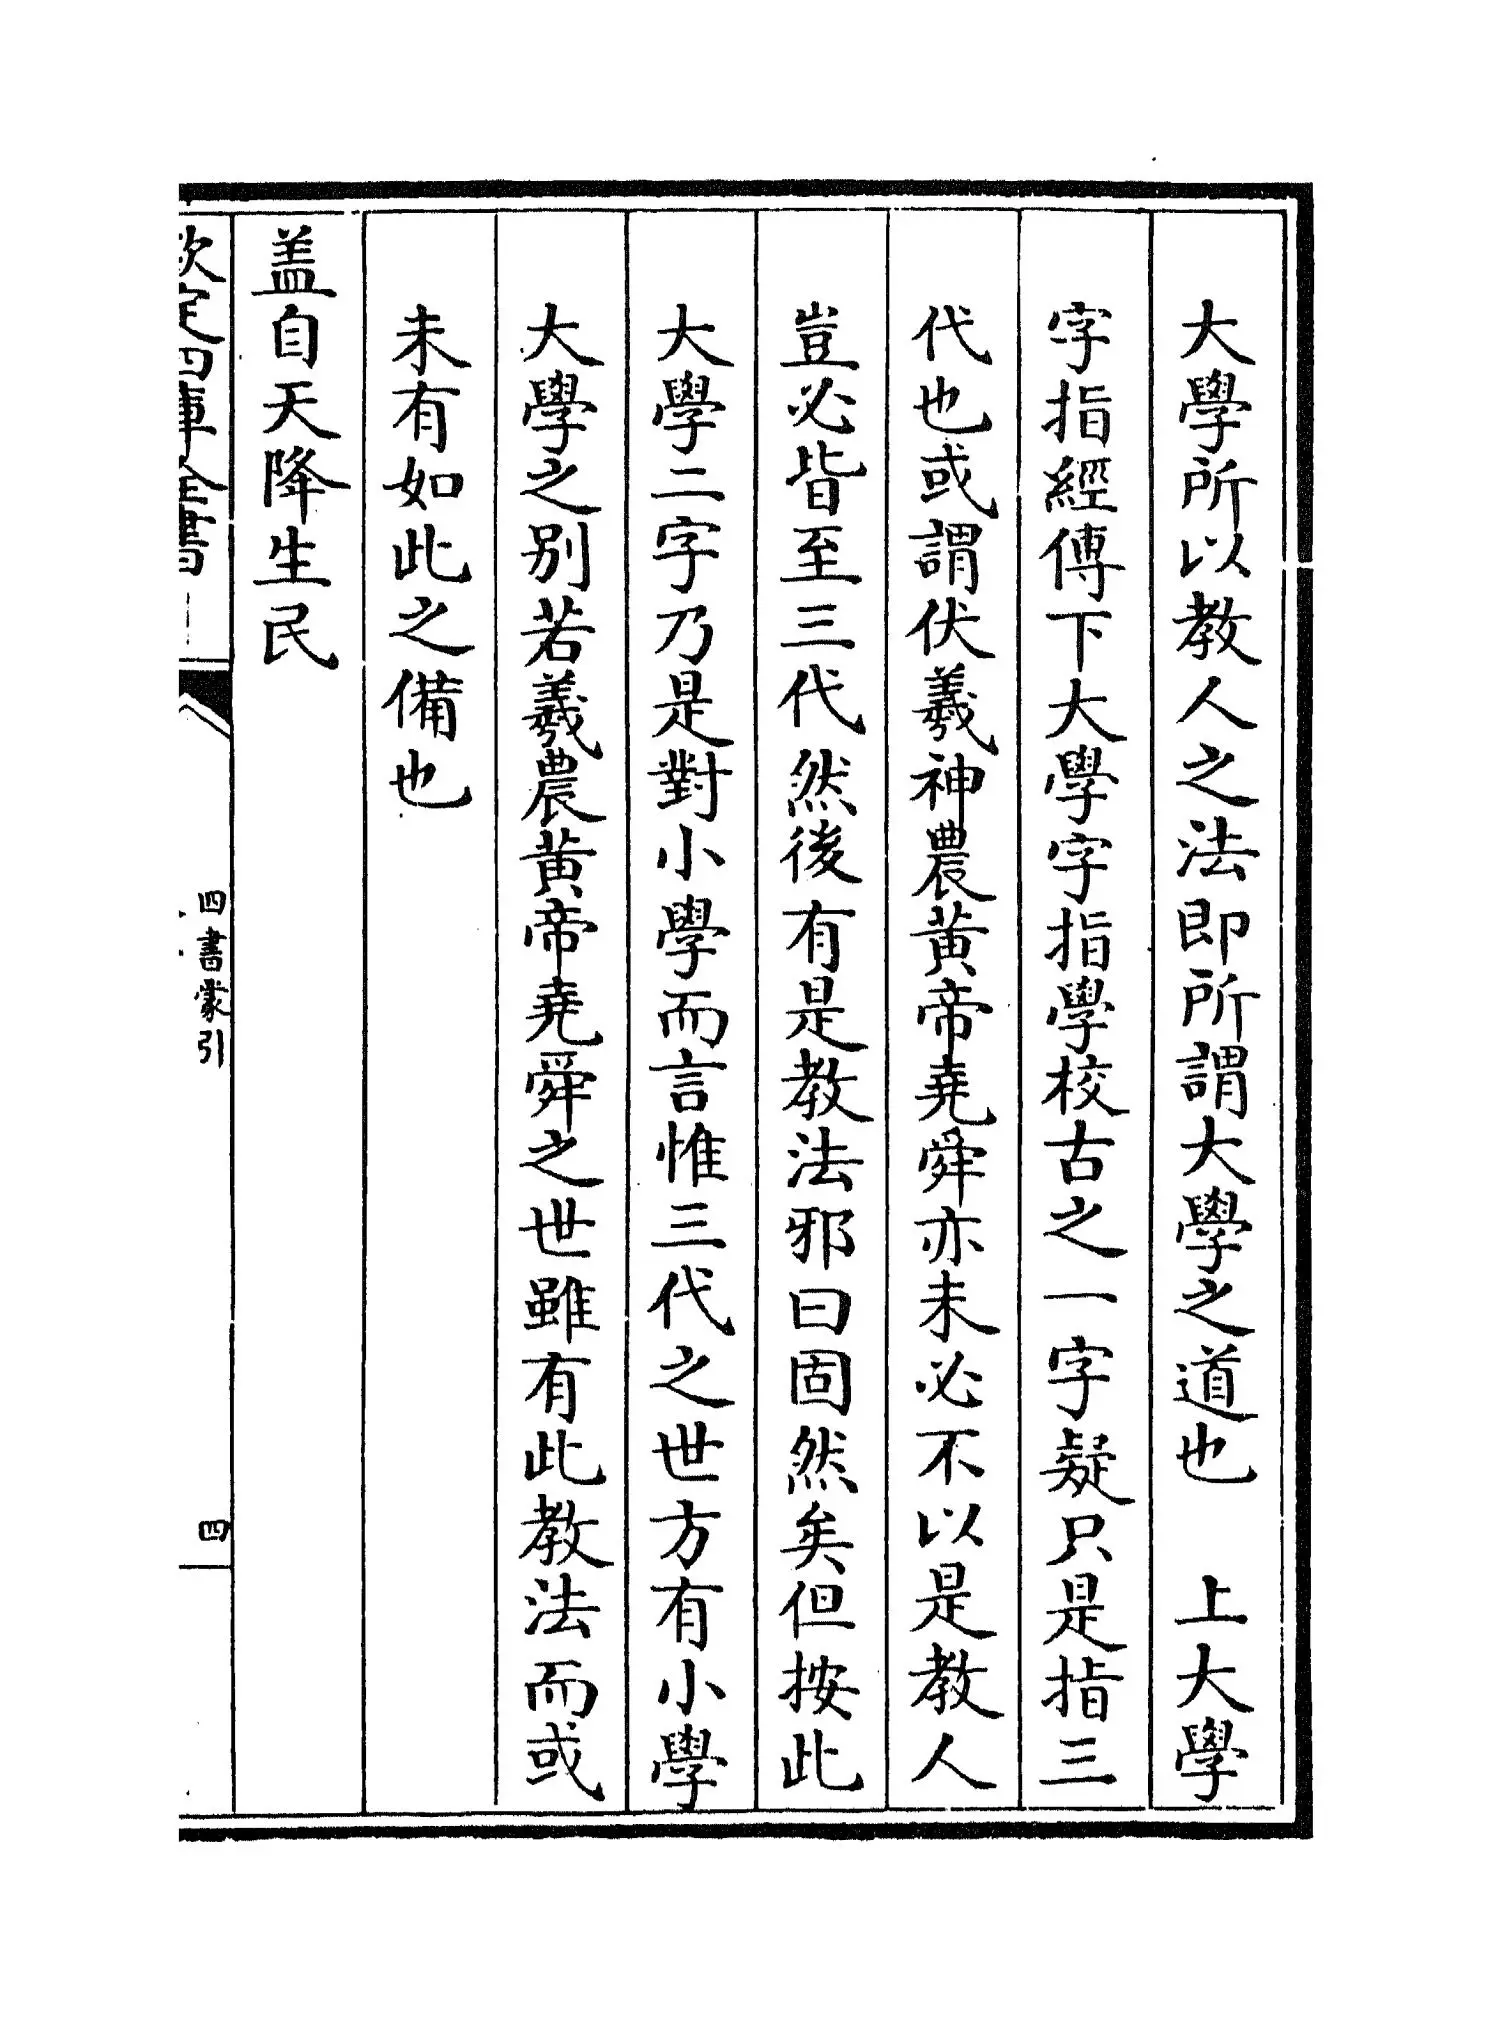 大學所以教人之法即所謂大學之道也　上大學
字指經傳下大學字指學校古之一字疑只是指三
代也或謂伏羲神農黃帝堯舜亦未必不以是教人
豈必皆至三代然後有是教法邪曰固然矣但按此
大學二字乃是對小學而言惟三代之世方有小學
大學之别若羲農黃帝堯舜之世雖有此教法而或
未有如此之備也
盖自天降生民
欽定四庫全書
四書蒙引
四